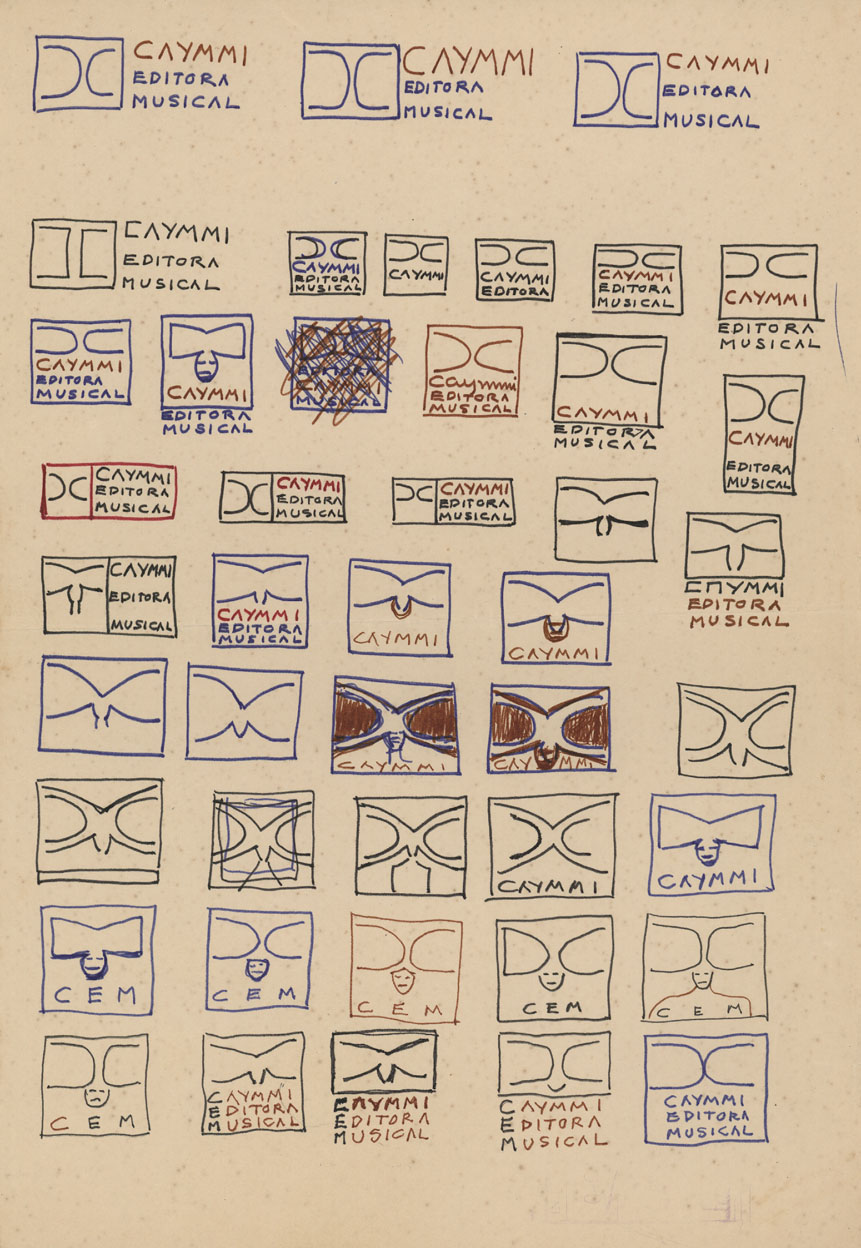 CAYMMI
EDITORA
MUSICAL
CAYMMI
EDITORA
MUSICAL
CAYMMI
EDITORA
MUSICAL
CAYMMI
EDITORA
MUSICAL
CAYMMI
EDITORA
MUSICAL
CAYMMI
CAYMMI
EDITORA
CAYMMI
EDITORA
MUSICAL
CAYMMI
EDITORA
MUSICAL
CAYMMI
EDITORA
MUSICAL
CAYMMI
EDITORA
MUSICAL
EDITORA
CAYMMI
MUSICAL
Caymmi
EDITORA
MUSICAL
CAYMMI
EDITORA
MUSICAL
CAYMMI
EDITORA
MUSICAL
CAYMMI
EDITORA
MUSICAL
CAYMMI
EDITORA
MUSICAL
CAYMMI
EDITORA
MUSICAL
CAYMMI
EDITORA
MUSICAL
CAYMMI
EDITORA
MUSICAL
CAYMMI
EDITORA
MUSICAL
CAYMMI
CAYMMI
CAYMMI
CAYMMI
CAYMMI
CAYMMI
C E M
C E M
C E M
C E M
C E M
C E M
CAYMMI
EDITORA
MUSICAL
CAYMMI
EDITORA
MUSICAL
CAYMMI
EDITORA
MUSICAL
CAYMMI
EDITORA
MUSICAL